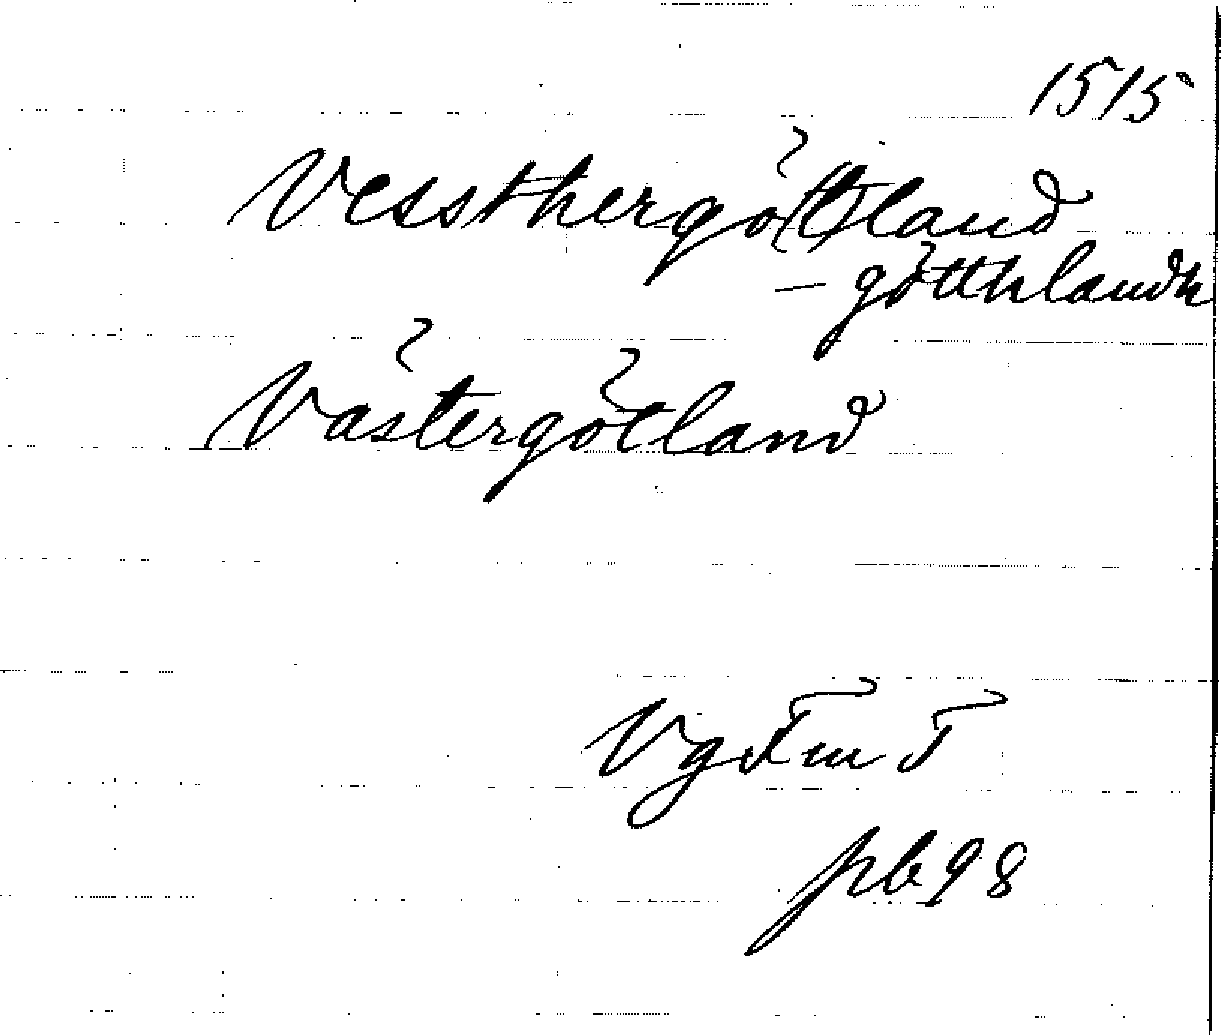 1515
Vessthergöt(t)land
- götthlandh
Västergötland
VgFmT
pb 98